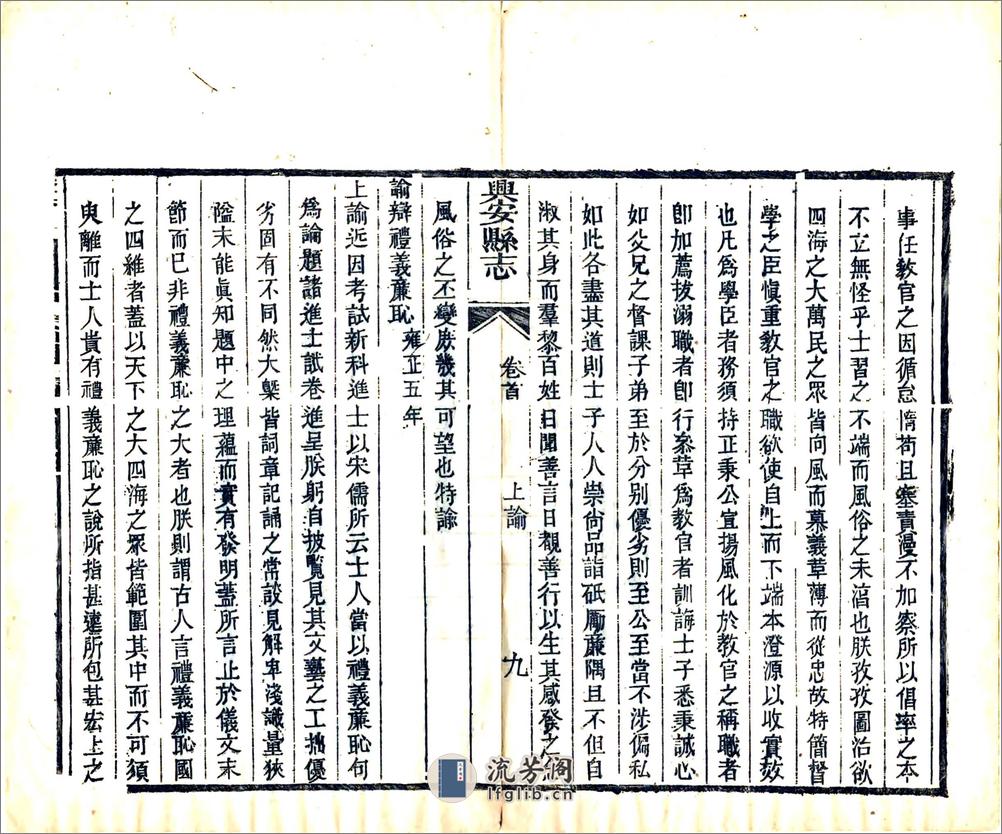 事任教官之因循怠惰苟且塞責漫不加察所以倡率之本
不立無怪乎士習之不端而風俗之未湻也朕孜孜圖治欲
四海之大萬民之眾皆向風而慕義革薄而從忠故特簡督
學之臣愼重教官之職欲使自上而下端本澄源以收實效
也凡爲學臣者務須持正秉公宣揚風化於教官之稱職者
卽加薦拔溺職者卽行叅革爲教官者訓誨士子悉秉誠心
如父兄之督課子弟至於分别優劣則至公至當不涉偏私
如此各盡其道則士子人人崇尚品詣砥勵廉隅且不但自
淑其身而羣黎百姓日聞善言日觀善行以生其感發之
風俗之丕變庶幾其可望也特諭
興安縣志
卷首
上諭
九
諭辯禮義廉恥 雍正五年
上諭近因考試新科進士以宋儒所云士人當以禮義廉恥句
爲論題諸進士試卷進呈朕躬自披覧見其文藝之工拙優
劣固有不同然大槩皆詞章記誦之常談見解卑淺識量狹
隘未能眞知題中之理蘊而實有發明蓋所言止於儀文末
節而已非禮義廉恥之大者也朕則謂古人言禮義廉恥國
之四維者蓋以天下之大四海之眾皆範圍其中而不可須
臾離而士人貴有禮義廉恥之說所指甚遠所包甚宏上之
流芳阁
lfglib.cn